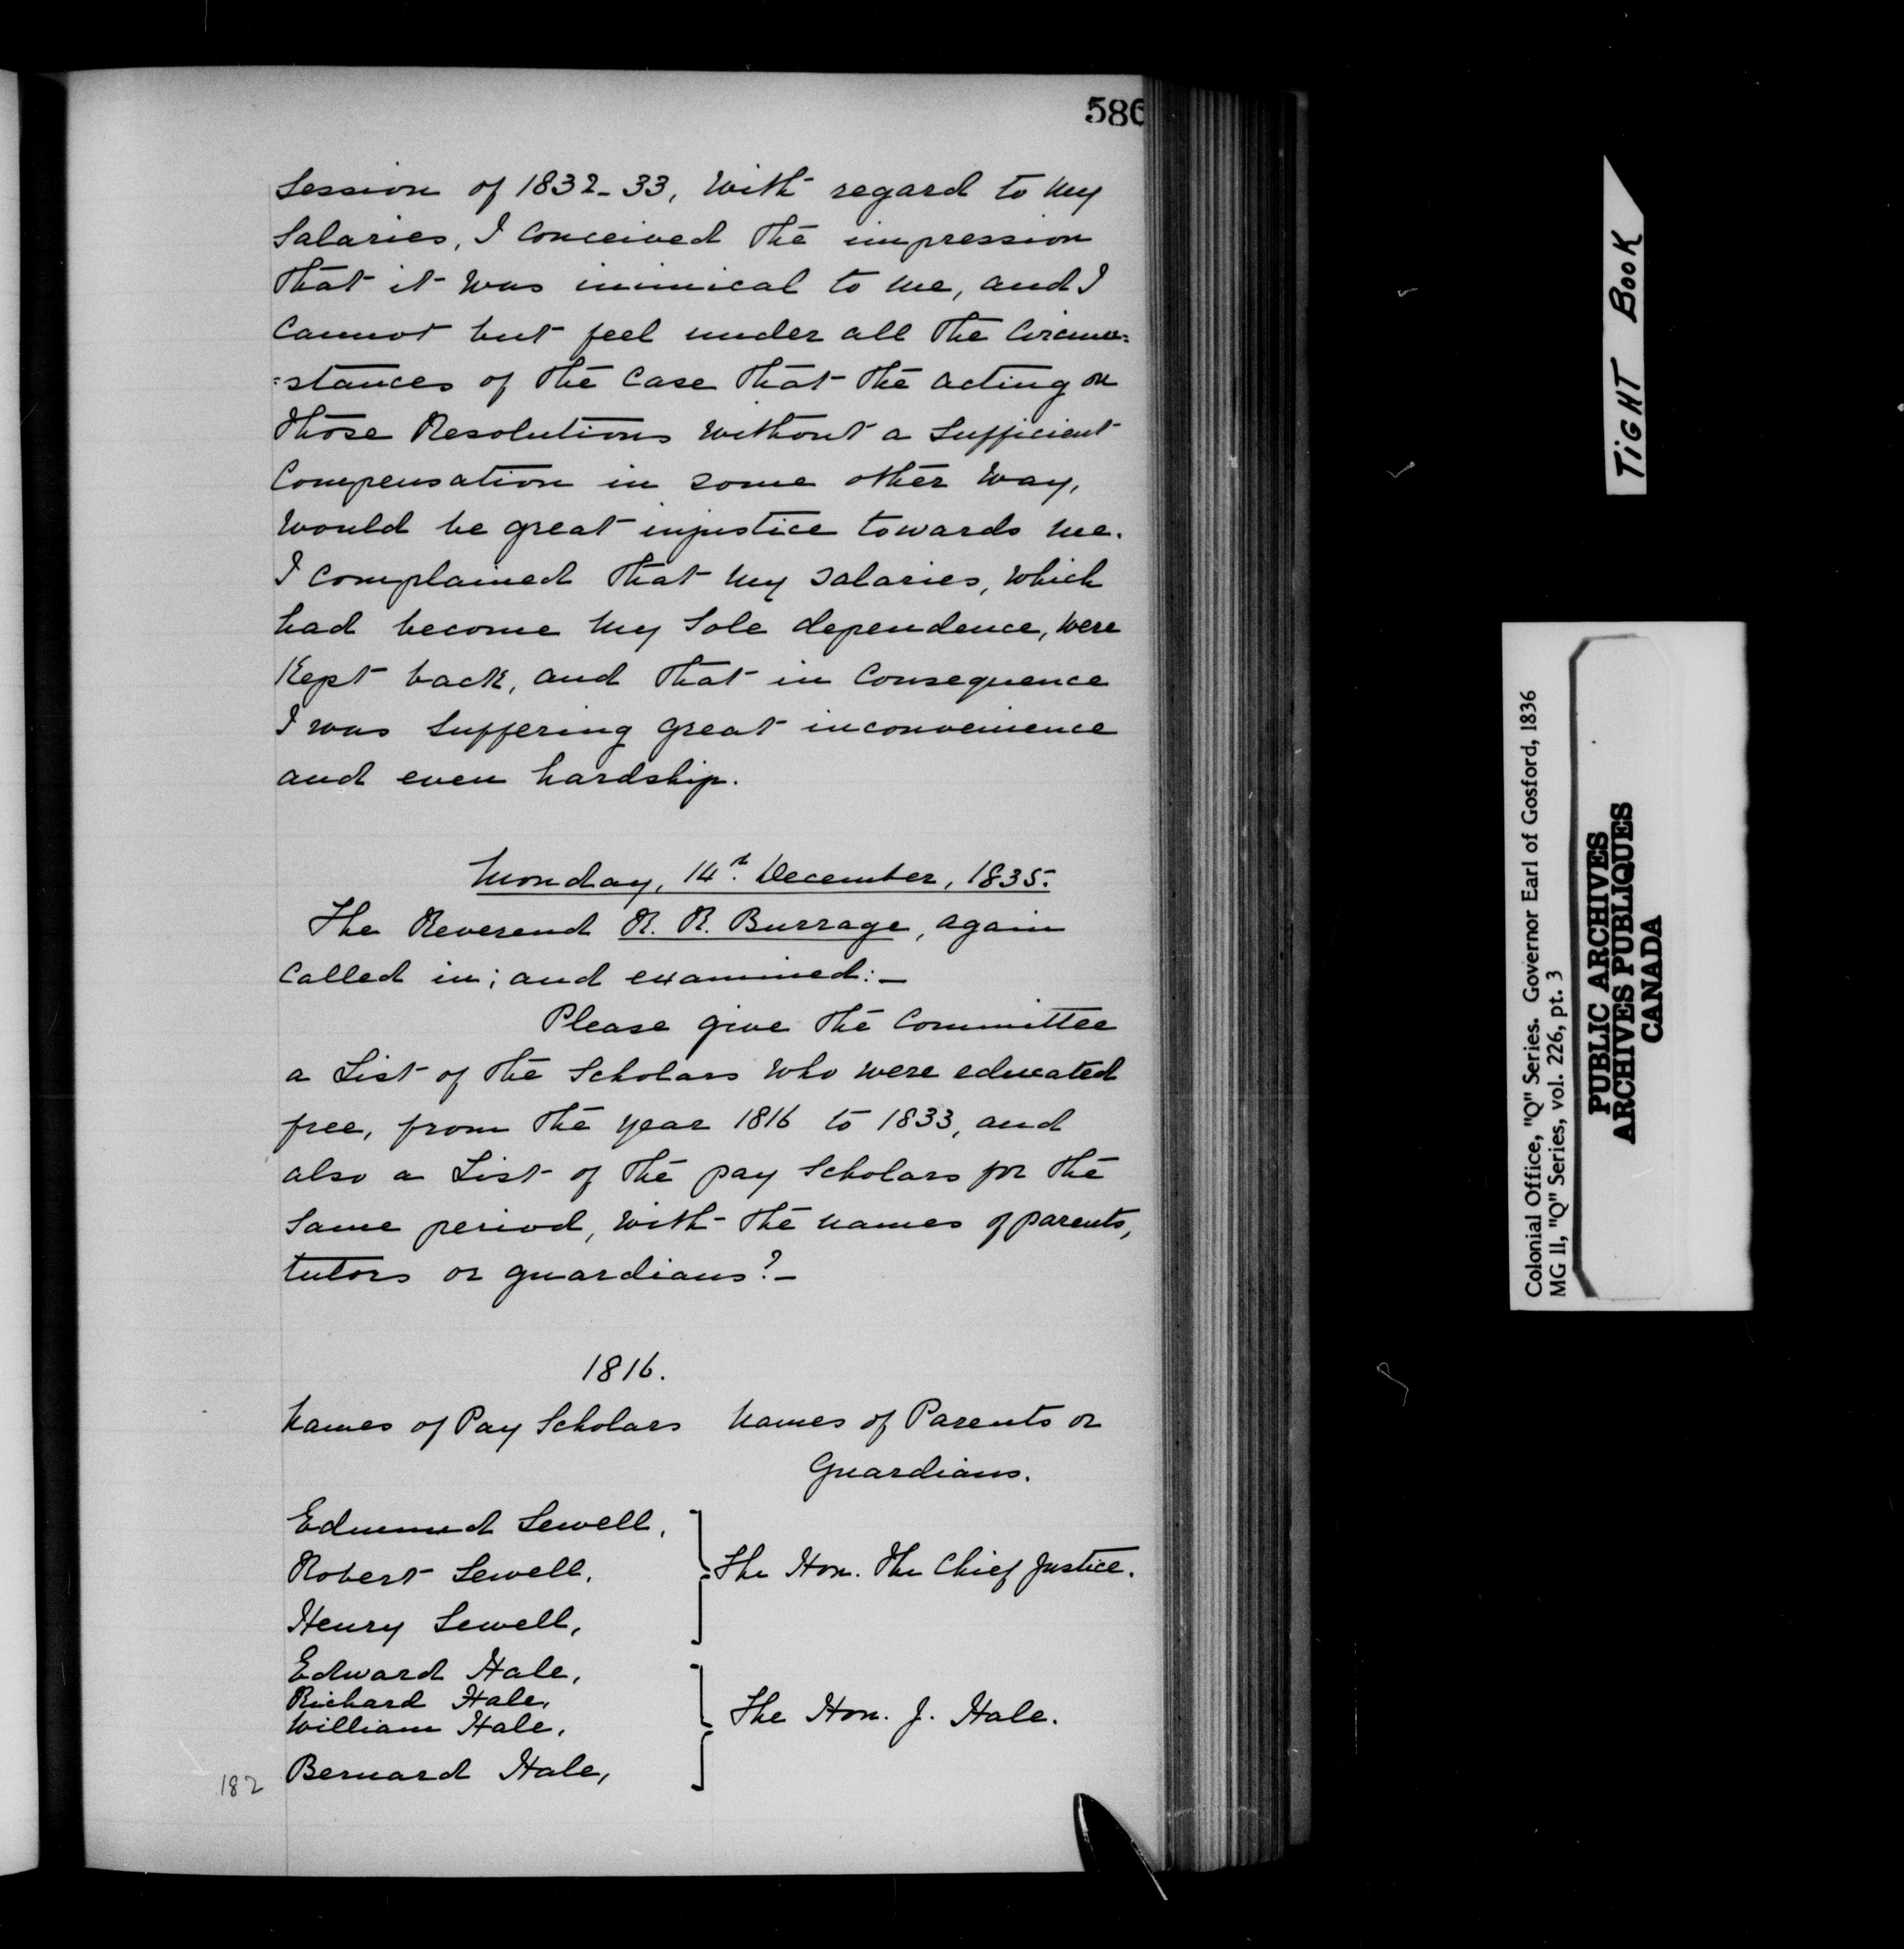 586
Session of 1832-33, with regard to my
Salaries, I conceived the impression
that it was inimical to me, and I
cannot but feel under all the Circum=
=stances of the Case that the acting on
those Resolutions without a sufficient
Compensation in some other way,
would be great injustice towards me.
I complained that my salaries, which
had become my sole dependence, were
Kept back, and that in consequence
I was suffering great inconvenience
and even hardship.
Monday, 14th December, 1835.
The Reverend R. R. Burrage, again
called in; and examined:-
Please give the Committee
a List of the Scholars who were educated
free, from the year 1816 to 1833, and
also a List of the pay Scholars for the
same period, with the names of parents,
tutors or guardians?-
1816.
Names of Pay Scholars Names of Parents or
Guardians.
Edmund Sewell,
Robert Sewell, The Hon. The Chief Justice.
Henry Sewell,
Edward Hale,
Richard Hale,
William Hale, The Hon. J. Hale.
Bernard Hale,
182
TIGHT BOOK
Colonial Office, "Q" Series. Governor Earl of Gosford, 1836
MG 11, "Q" Series, vol. 226, pt. 3
PUBLIC ARCHIVES
ARCHIVES PUBLIQUES
CANADA